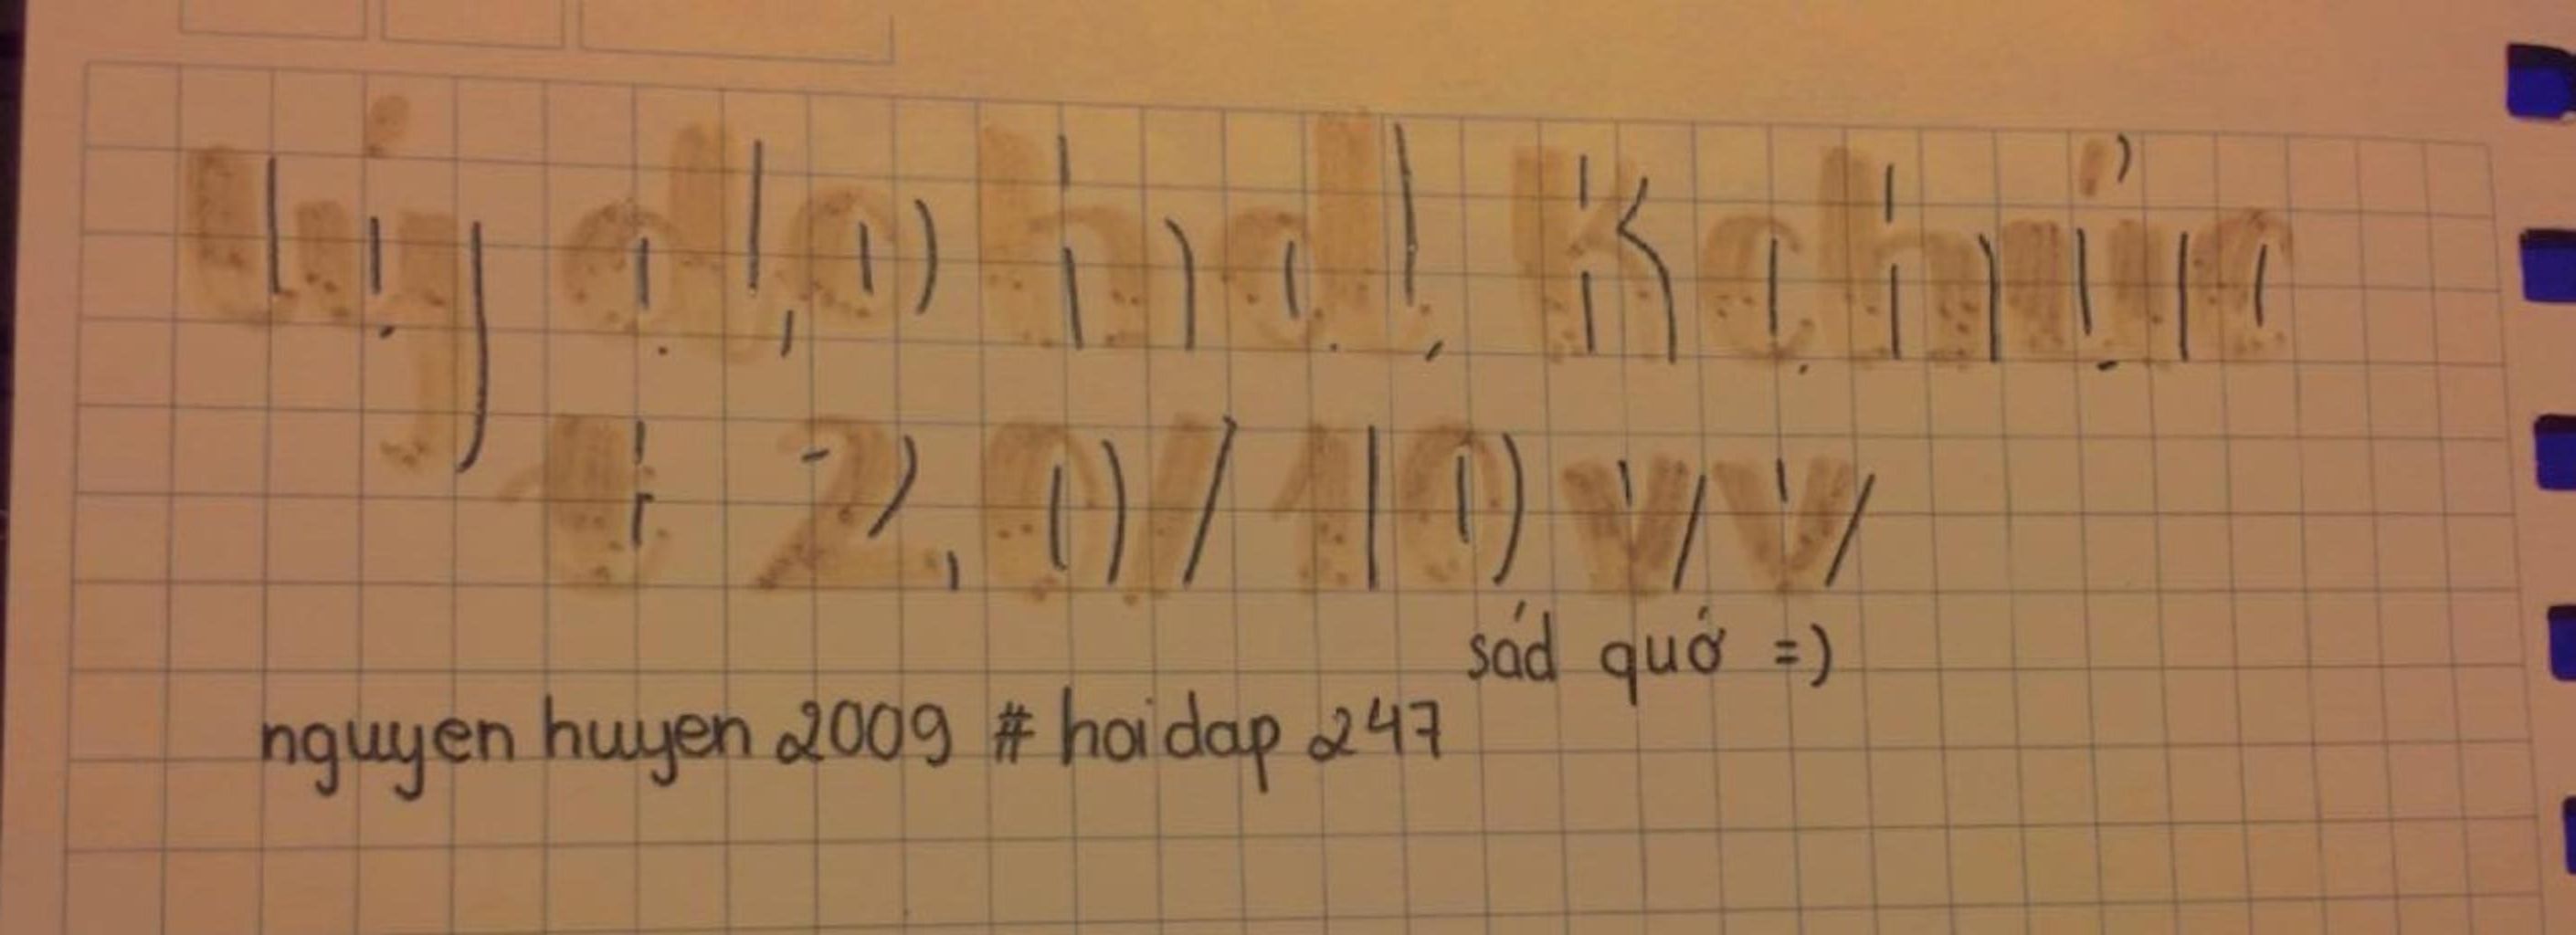 Lý do hd Kchúc
t 20/10 vv
sád quớ =)
nguyen huyen 2009 # hoidap 247